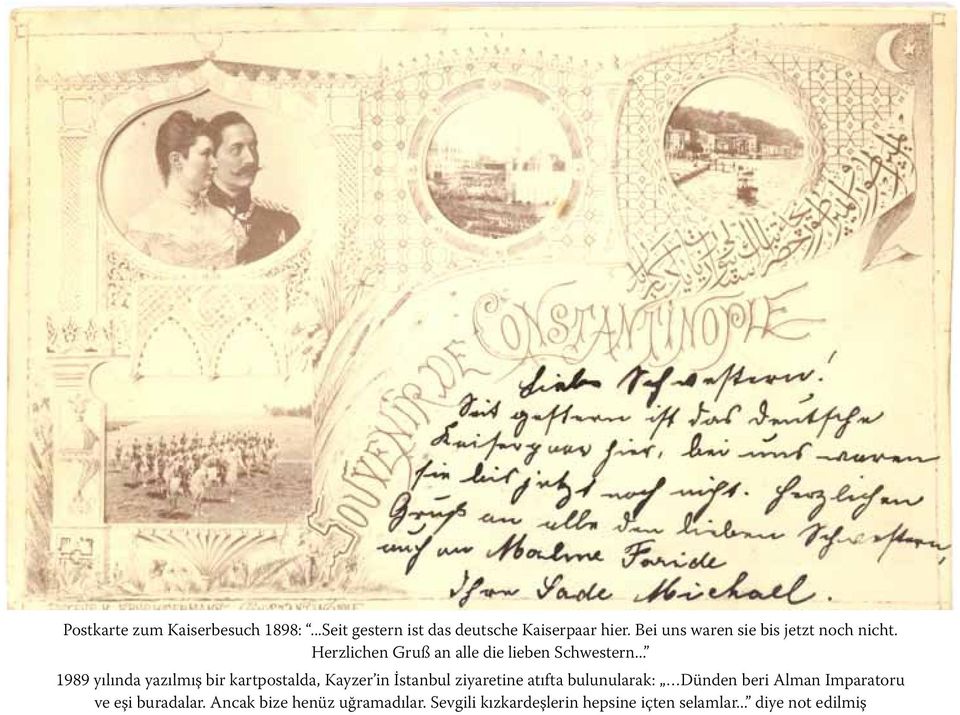 SOUVENIR DE CONSTANTINOPLE
Liebe Schwestern!
Seit gestern ist das deutsche
Kaiserpaar hier, bei uns waren
sie bis jetzt noch nicht. Herzlichen
Gruß an alle den lieben Schwestern,
auch an
Ihre Sade Michaell.
Postkarte zum Kaiserbesuch 1898: “...Seit gestern ist das deutsche Kaiserpaar hier. Bei uns waren sie bis jetzt noch nicht.
Herzlichen Gruß an alle die lieben Schwestern...”
1989 yılında yazılmış bir kartpostalda, Kayzer’in İstanbul ziyaretine atıfta bulunularak: „…Dünden beri Alman Imparatoru
ve eşi buradalar. Ancak bize henüz uğramadılar. Sevgili kızkardeşlerin hepsine içten selamlar...” diye not edilmiş